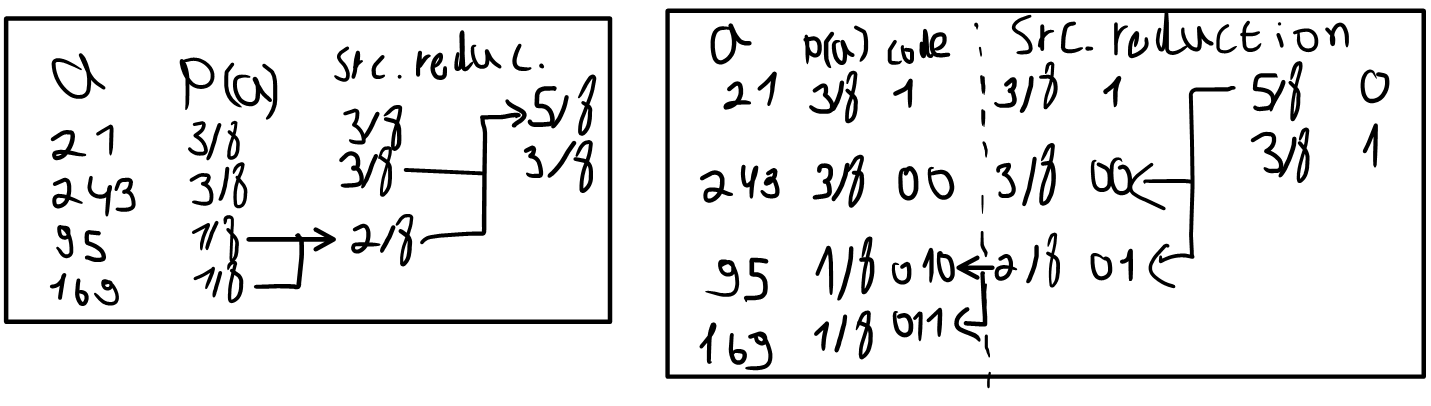 a P(a) Src. reduc.
21 3/8 3/8 5/8
243 3/8 3/8 3/8
95 1/8 2/8
169 1/8
a P(a) code Src. reduction
21 3/8 1 3/8 1 5/8 0
3/8 1
243 3/8 00 3/8 00
95 1/8 010 2/8 01
169 1/8 011